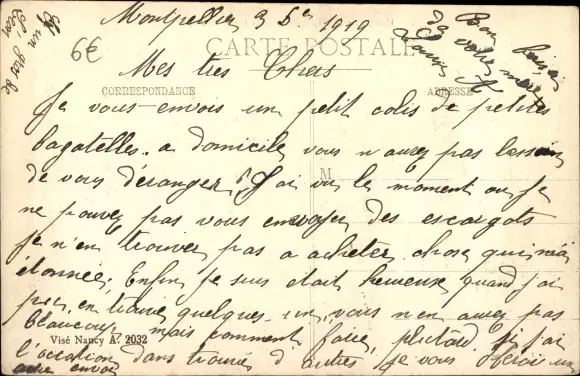 Montpellier 3 Dbre 1919
6€
CARTE POSTALE
Mes tres Chers
CORRESPONDANCE
ADRESSE
Je vous envois un petit colis de petites
bagatelles. a domicile vous n'aurez pas besoin
de vous déranger. J'ai vu le moment ou je
M
ne pouvez pas vous envoyer des escargots
je n'en trouver pas a acheter chose qui m'a
étonnée, Enfin je suis était heureuse quand j'ai
peu en trouve quelques un, vous n'en aurez pas
beaucoup mais comment faire, plutard si j'ai
Visé Nancy A. 2032
l'occasion dans trouver d'autres je vous ferai un
autre envoi
un gros
Bon baiser
de votre